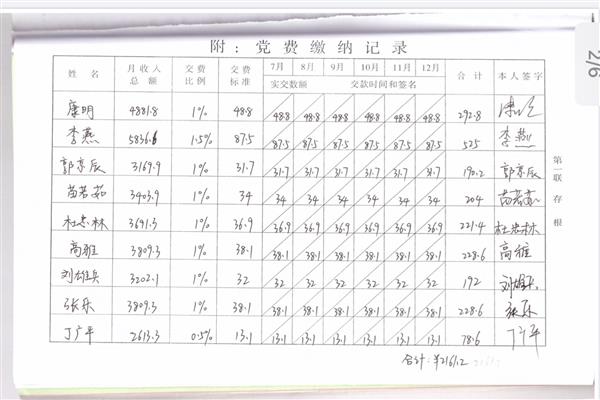 附：党费缴纳记录
姓名 月收入总额 交费比例 交费标准 7月 8月 9月 10月 11月 12月 合计 本人签字
实交数额 交款时间和签名
康明 4881.8 1% 48.8 48.8 48.8 48.8 48.8 48.8 48.8 292.8
李燕 5836.6 1.5% 87.5 87.5 87.5 87.5 87.5 87.5 87.5 525 李燕
郭京辰 3169.9 1% 31.7 31.7 31.7 31.7 31.7 31.7 31.7 190.2 郭京辰
苗若茹 3403.9 1% 34 34 34 34 34 34 34 204 苗若茹
杜忠林 3691.3 1% 36.9 36.9 36.9 36.9 36.9 36.9 36.9 221.4 杜忠林
高雅 3809.3 1% 38.1 38.1 38.1 38.1 38.1 38.1 38.1 228.6 高雅
刘雄兵 3202.1 1% 32 32 32 32 32 32 32 192 刘雄兵
张乐 3809.3 1% 38.1 38.1 38.1 38.1 38.1 38.1 38.1 228.6 张乐
丁广平 2613.3 0.5% 13.1 13.1 13.1 13.1 13.1 13.1 13.1 78.6 丁广平
合计：¥2161.2
第一联存根
2/6